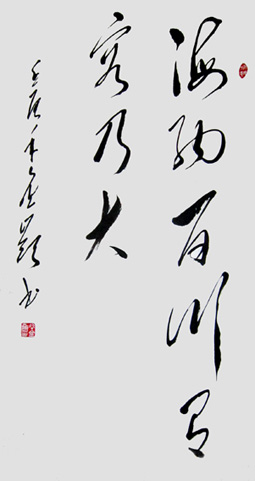 海纳百川有
容乃大
壬辰年书